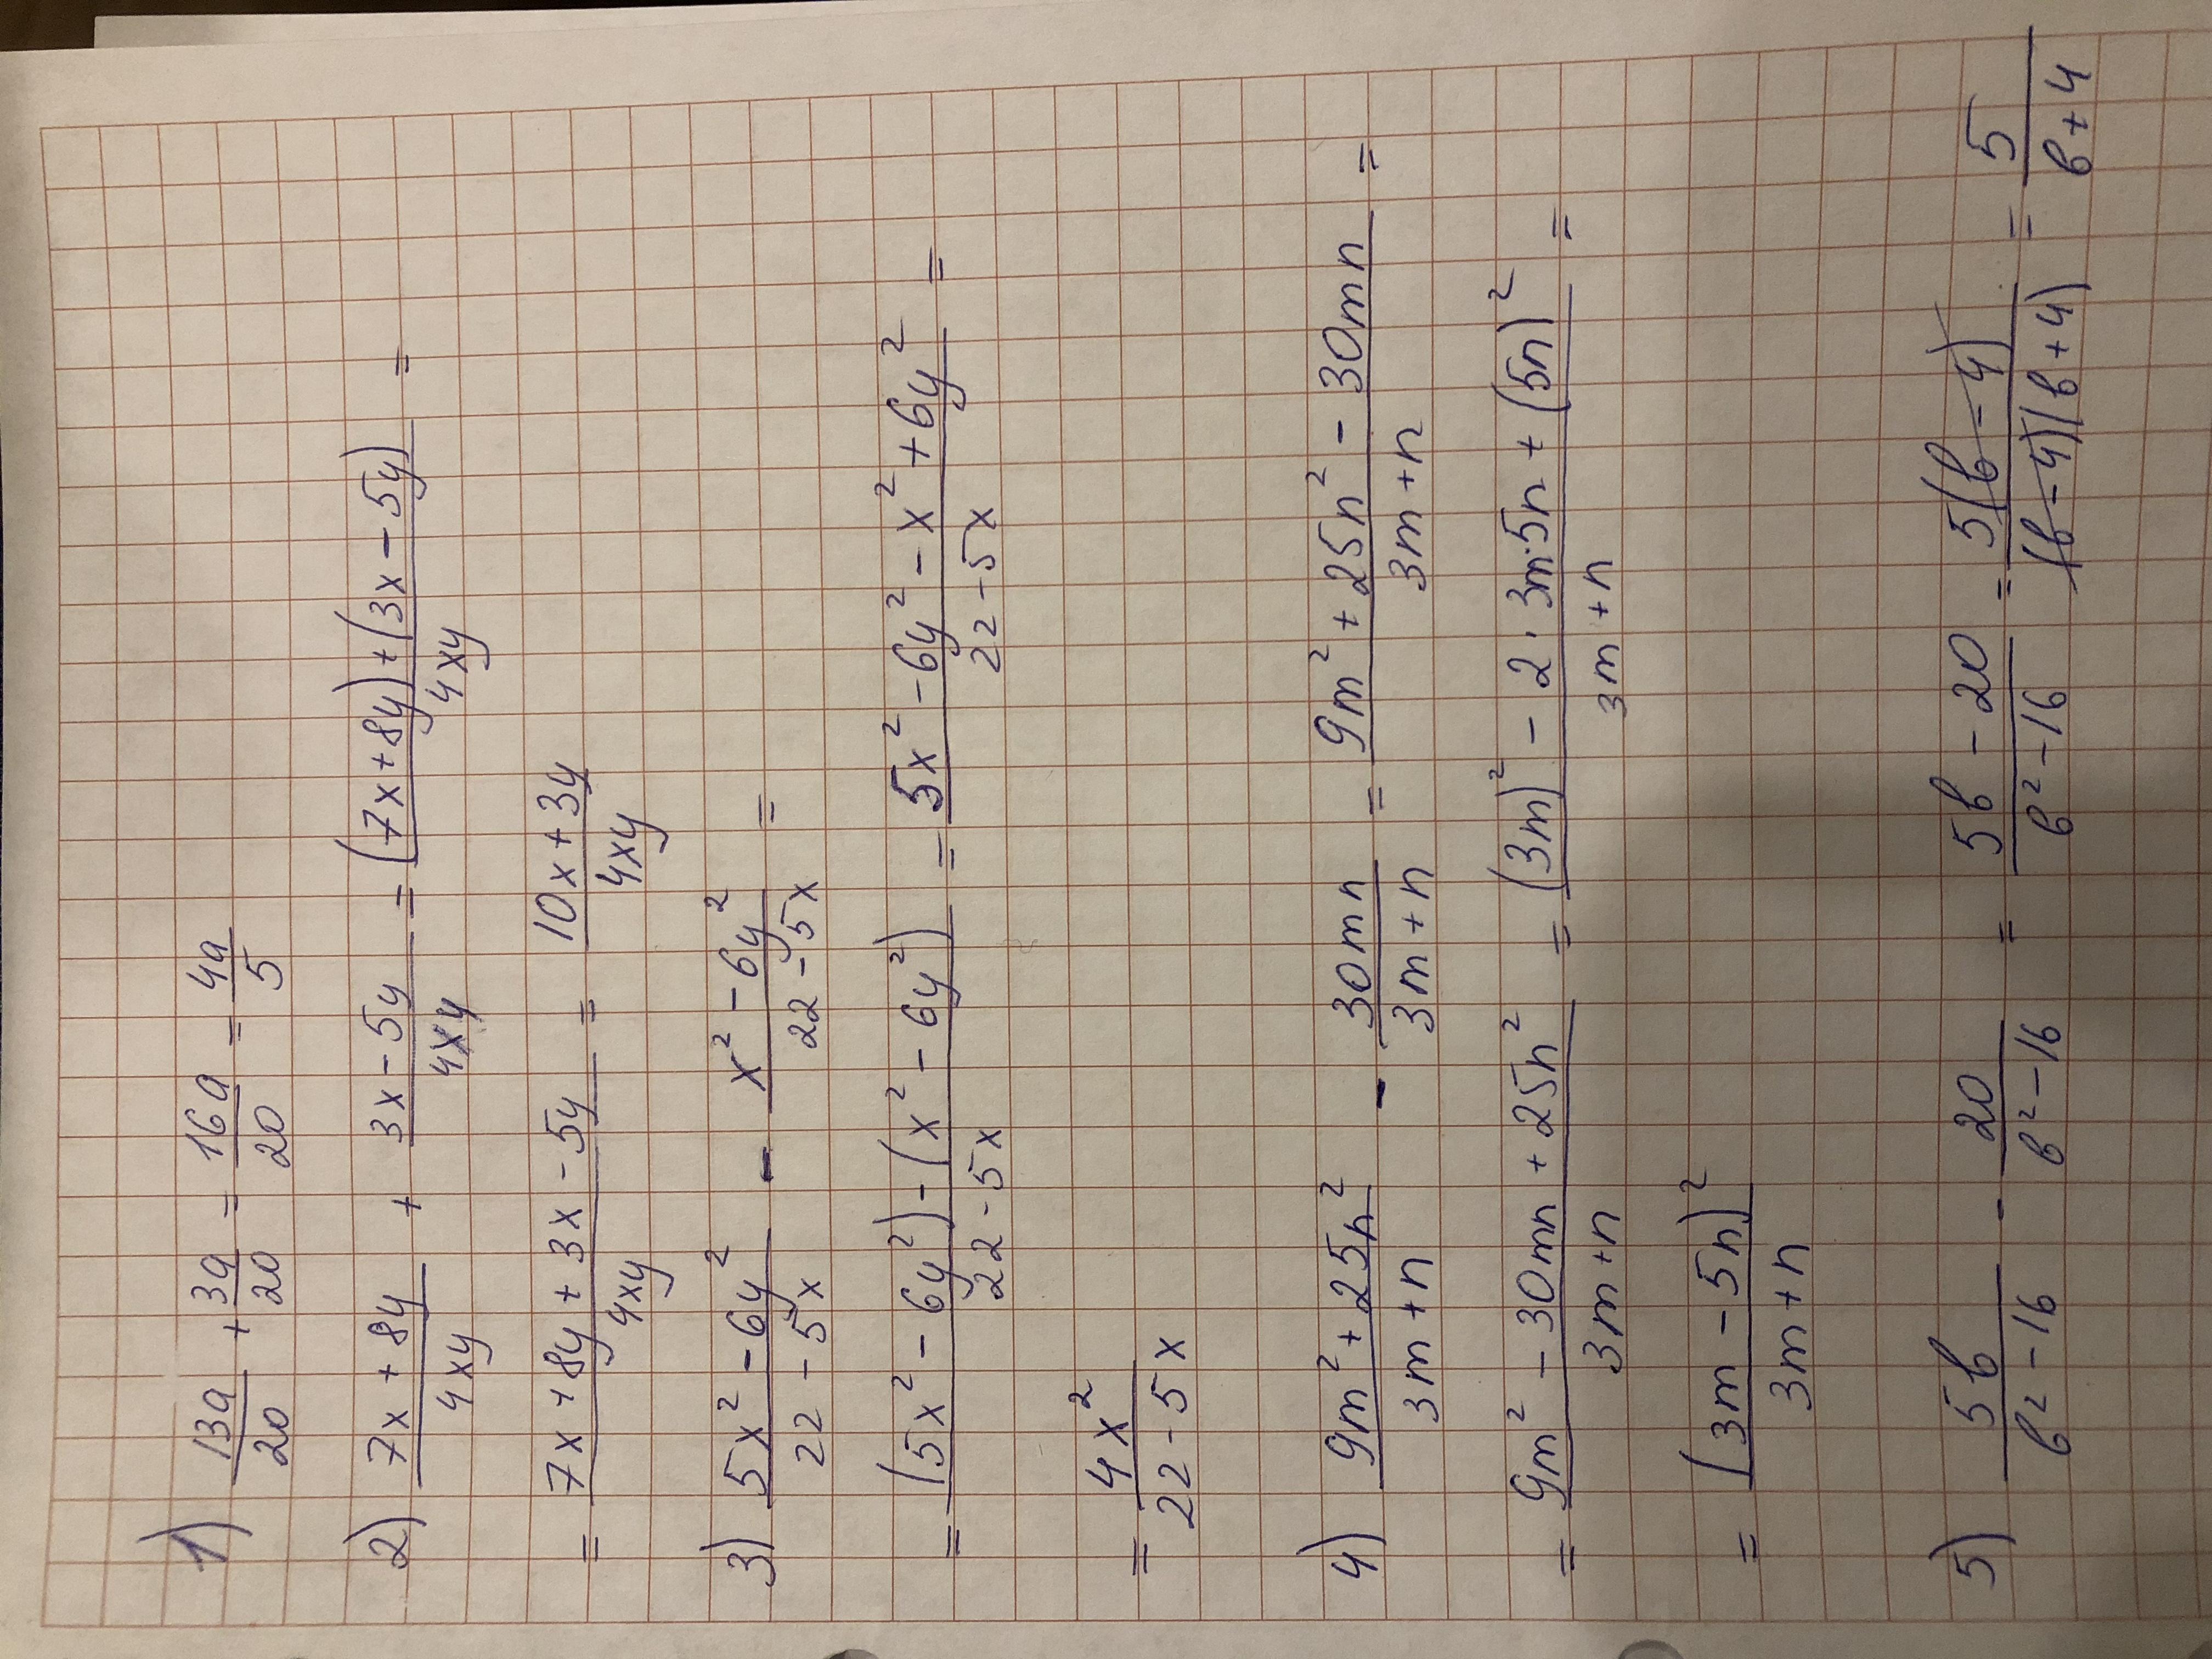 1) 13a/20 + 3a/20 = 16a/20 = 4a/5
2) (7x+8y)/(4xy) + (3x-5y)/(4xy) = ((7x+8y)+(3x-5y))/(4xy) =
= (7x+8y+3x-5y)/(4xy) = (10x+3y)/(4xy)
3) (5x²-6y²)/(22-5x) - (x²-6y²)/(22-5x) =
= ((5x²-6y²)-(x²-6y²))/(22-5x) = (5x²-6y²-x²+6y²)/(22-5x) =
= 4x²/(22-5x)
4) (9m²+25n²)/(3m+n) - 30mn/(3m+n) = (9m²+25n²-30mn)/(3m+n) =
= (9m²-30mn+25n²)/(3m+n) = ((3m)²-2·3m·5n+(5n)²)/(3m+n) =
= (3m-5n)²/(3m+n)
5) 5b/(b²-16) - 20/(b²-16) = (5b-20)/(b²-16) = 5(b-4)/((b-4)(b+4)) = 5/(b+4)